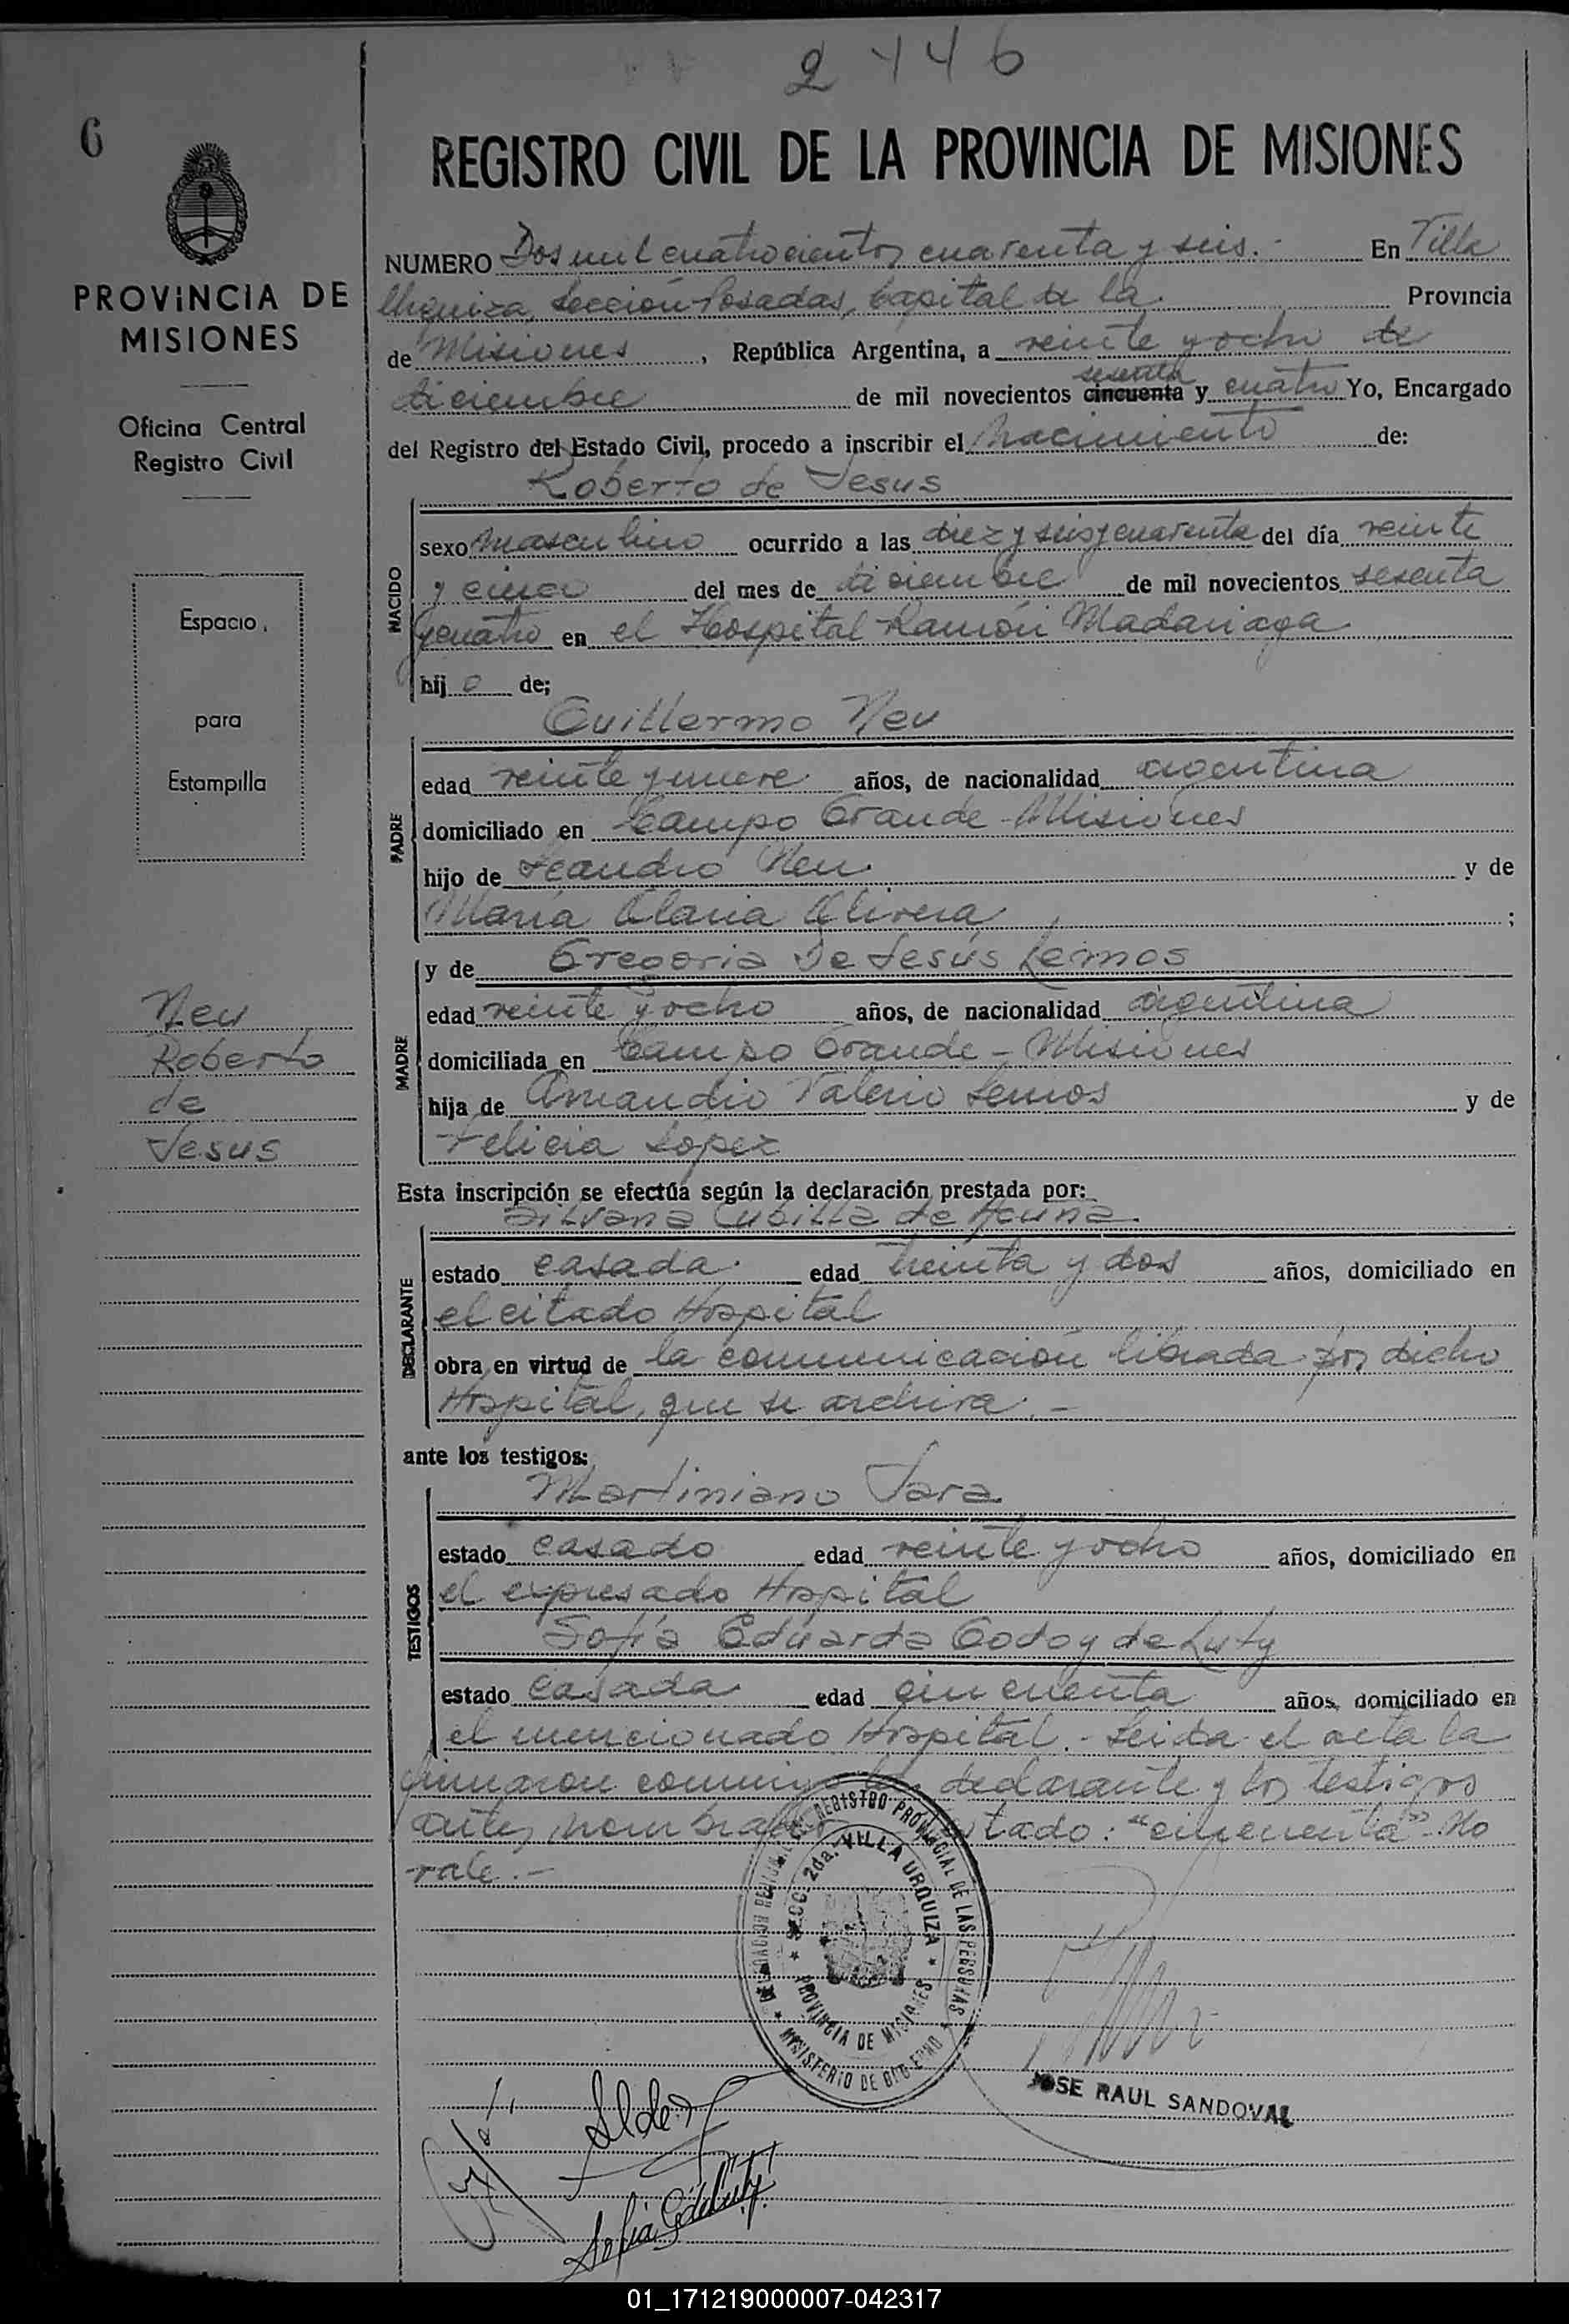 2446
6
REGISTRO CIVIL DE LA PROVINCIA DE MISIONES
PROVINCIA DE
MISIONES
Oficina Central
Registro Civil
Espacio
para
Estampilla
Neu
Roberto
de
Jesus
NUMERO Dos mil cuatrocientos cuarenta y seis.- En Villa
Urquiza, Sección Posadas, Capital de la Provincia
de Misiones, República Argentina, a veinte y ocho de
diciembre de mil novecientos cincuenta sesenta y cuatro Yo, Encargado
del Registro del Estado Civil, procedo a inscribir el Nacimiento de:
Roberto de Jesus
NACIDO
sexo masculino ocurrido a las diez y seis y cuarenta del día veinte
y cinco del mes de diciembre de mil novecientos sesenta
y cuatro en el Hospital Ramón Madariaga
hij o de;
Guillermo Neu
PADRE
edad veinte y nueve años, de nacionalidad argentina
domiciliado en Campo Grande - Misiones
hijo de Leandro Neu y de
María Claria Olivera;
MADRE
y de Gregoria De Jesús Lemos
edad veinte y ocho años, de nacionalidad argentina
domiciliada en Campo Grande - Misiones
hija de Amandio Valerio Lemos y de
Felicia López
Esta inscripción se efectúa según la declaración prestada por:
Silvana Cubilla de Acuña.
DECLARANTE
estado casada. edad treinta y dos años, domiciliado en
el citado Hospital
obra en virtud de la comunicación librada por dicho
Hospital, que se archiva.-
ante los testigos:
Martiniano Jara
TESTIGOS
estado casado edad veinte y ocho años, domiciliado en
el expresado Hospital
Sofía Eduarda Godoy de Luty
estado casada edad cincuenta años, domiciliado en
el mencionado Hospital.- Leida el acta la
firmaron conmigo la declarante y los testigos
antes nombrados tado: "cincuenta" No
vale.-
REGISTRO PROVINCIAL DE LAS PERSONAS
SECC. 2da. VILLA URQUIZA
PROVINCIA DE MISIONES
MINISTERIO DE GOBIERNO
JOSE RAUL SANDOVAL
Sofía G de Luty
01_171219000007-042317